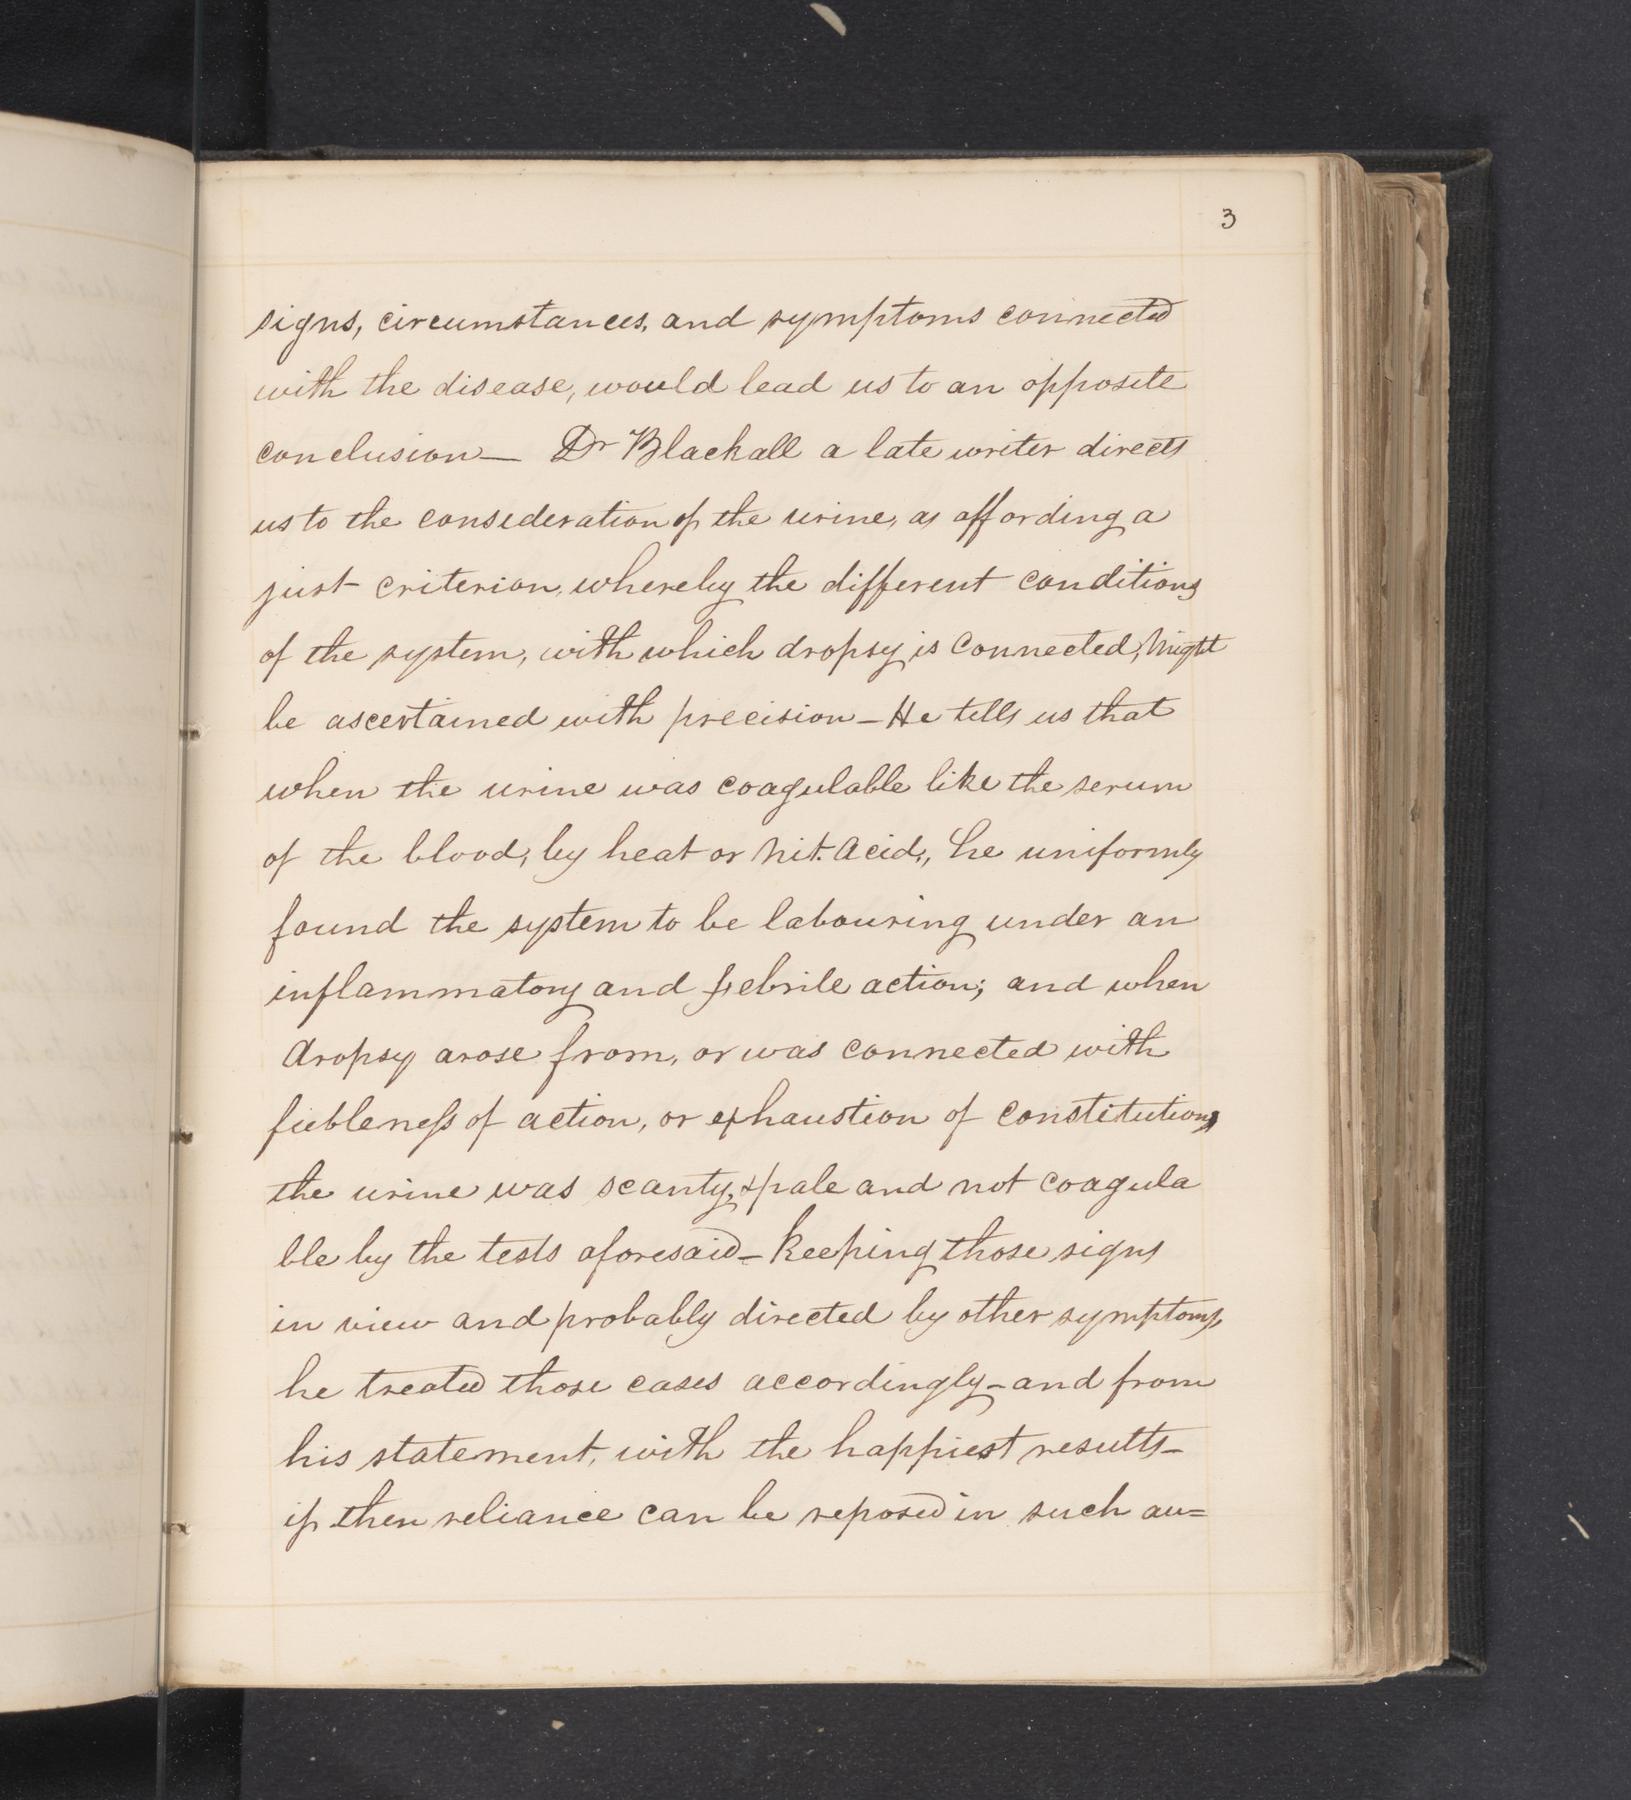 3
signs, circumstances, and symptoms connected
with the disease, would lead us to an opposite
conclusion— Dr Blackall a late writer directs
us to the consideration of the urine, as affording a
just criterion, whereby the different conditions
of the system, with which dropsy is connected, might
be ascertained with precision—He tells us that
when the urine was coagulable like the serum
of the blood, by heat or nit. acid, he uniformly
found the system to be labouring under an
inflammatory and febrile action; and when
dropsy arose from, or was connected with
fiebleness of action, or exhaustion of constitution,
the urine was scanty, & pale and not coagula
ble by the tests aforesaid—keeping those signs
in view and probably directed by other symptoms,
he treated those cases accordingly—and from
his statement, with the happiest results—
if then reliance can be reposed in such au=